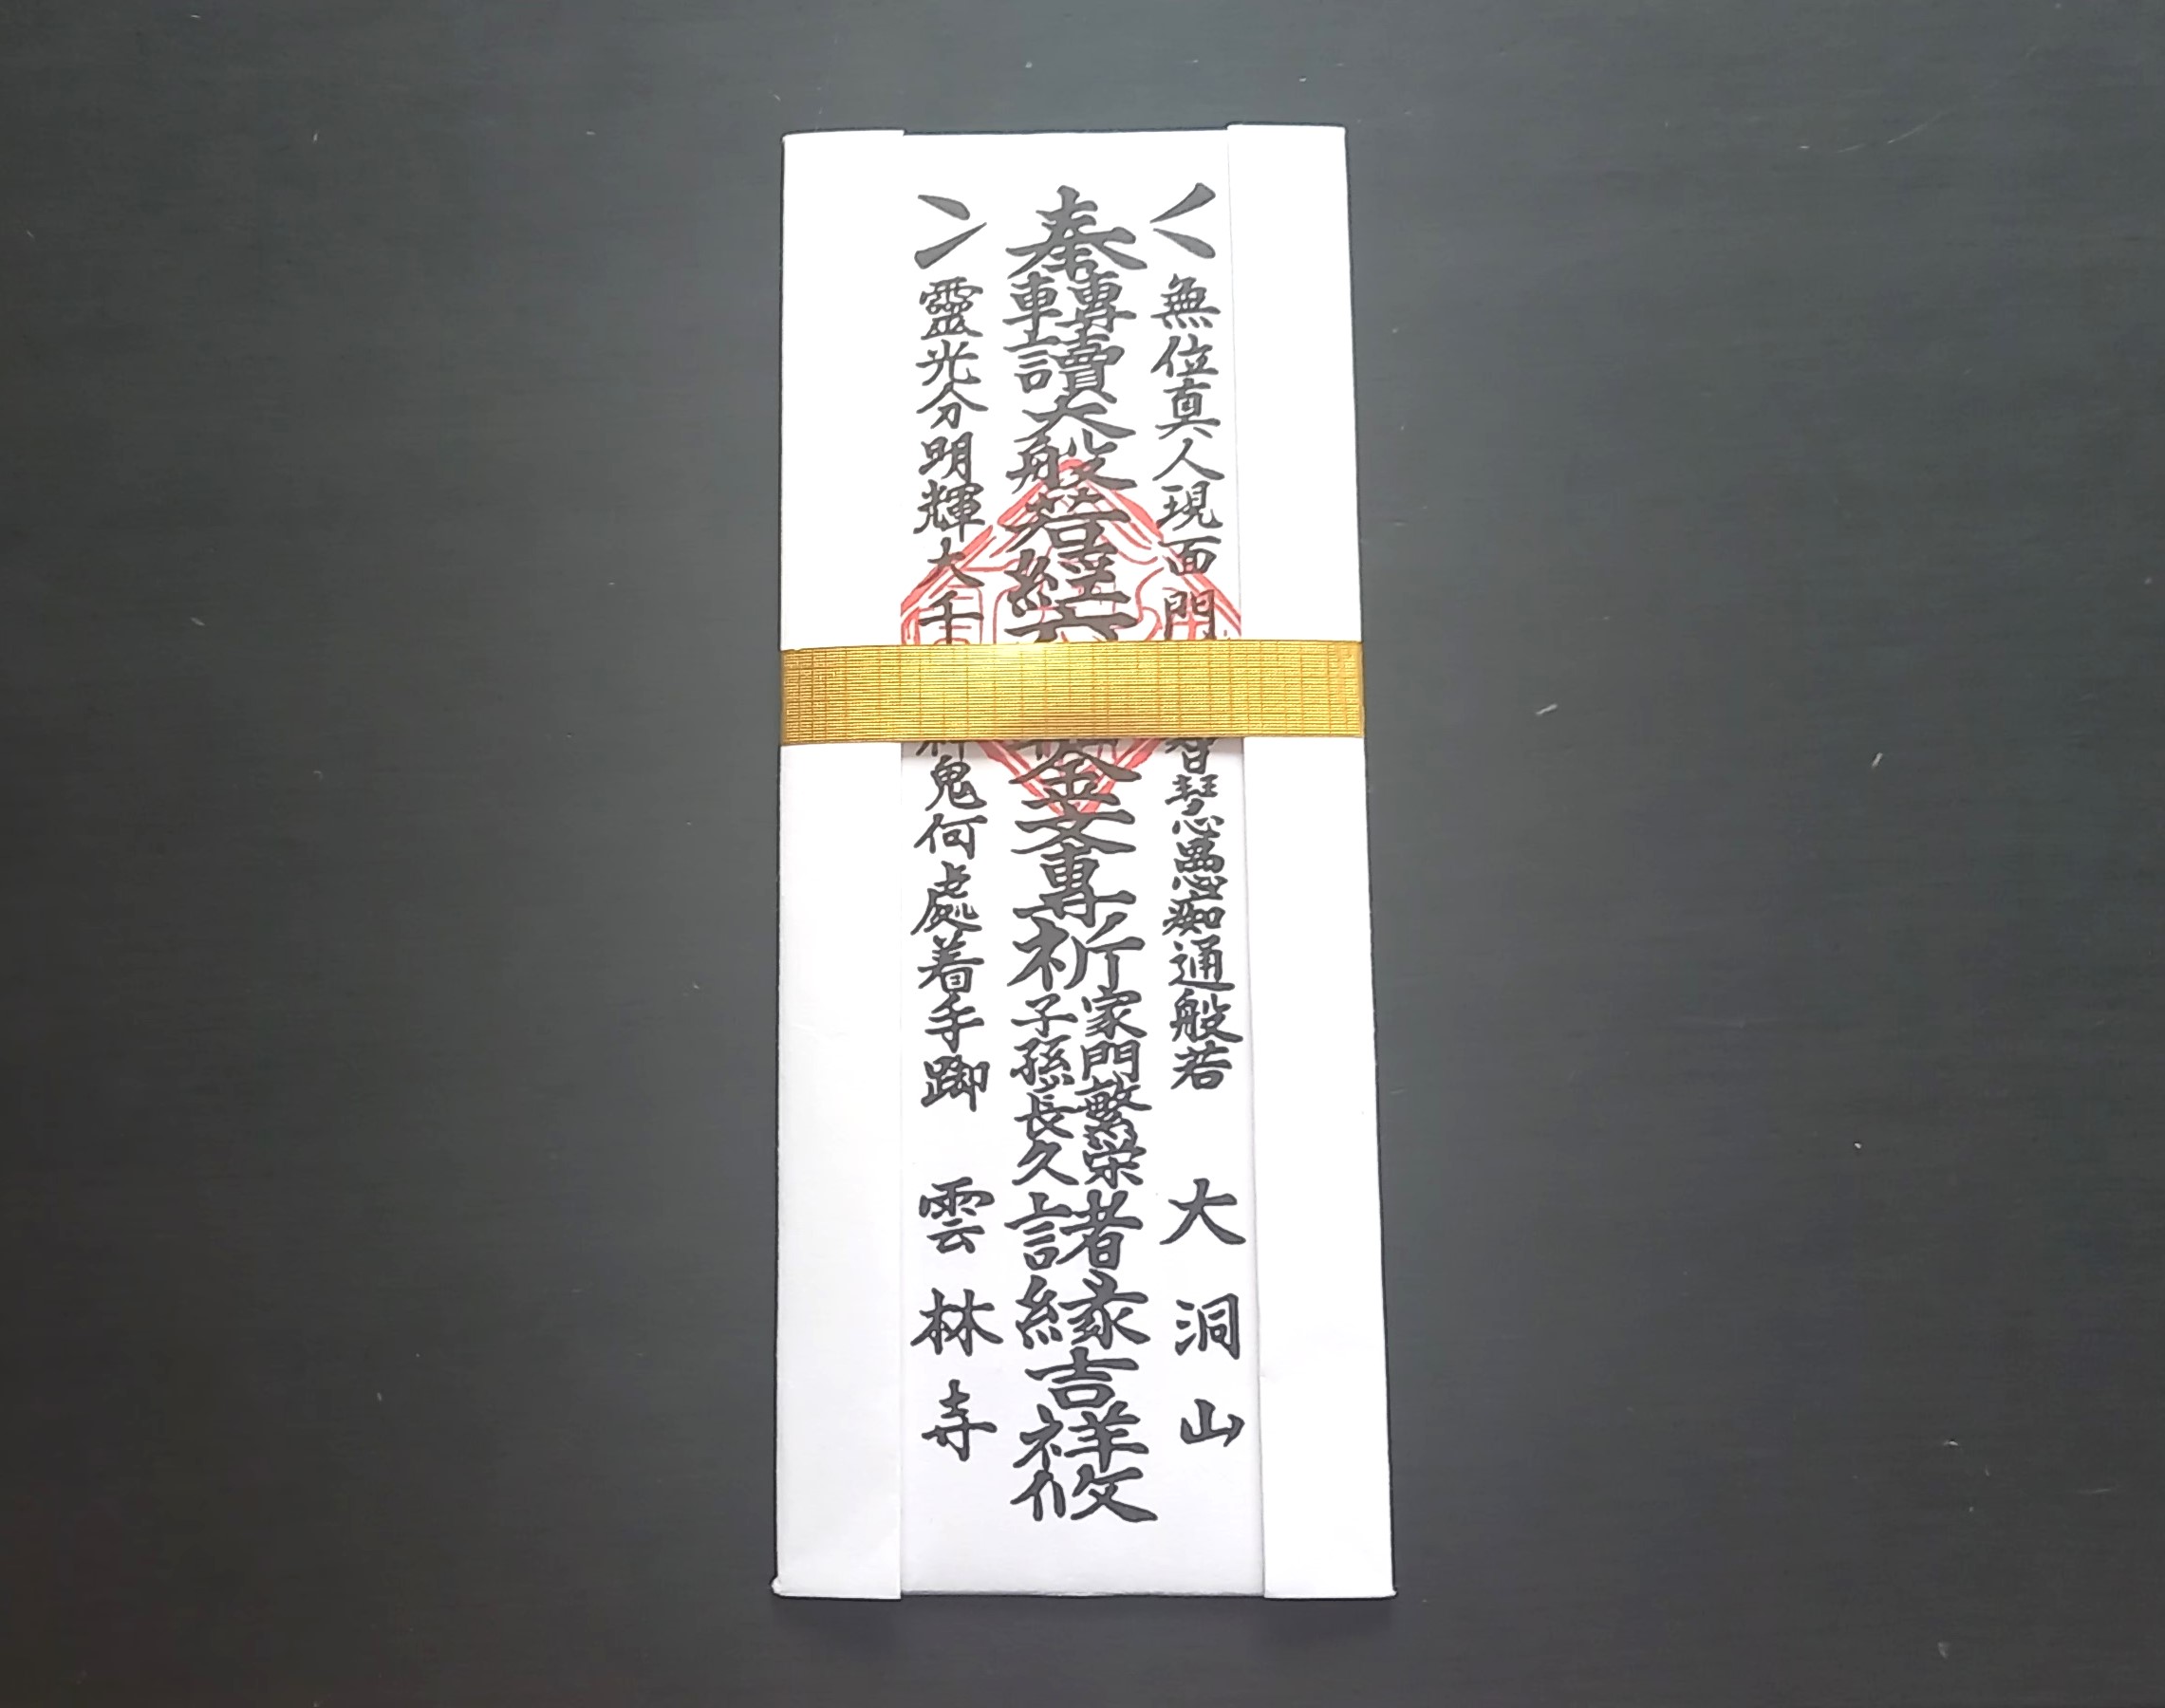 無位真人現面門 智慧愚痴通般若 大洞山
奉轉讀大般若経六 金文專祈
家門繁栄
子孫長久
諸縁吉祥攸
靈光分明輝大千 神鬼何處着手脚 雲林寺